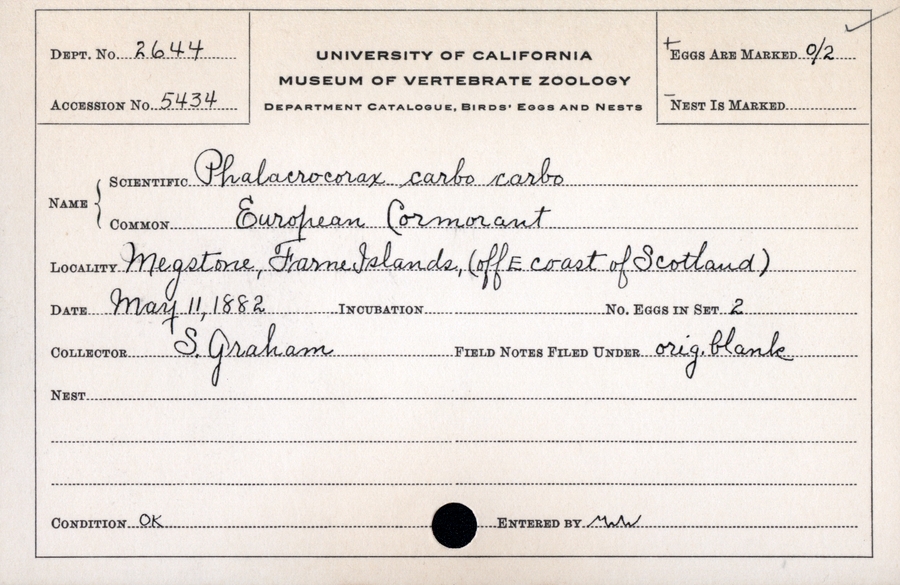 DEPT. No. 2644
ACCESSION No. 5434
UNIVERSITY OF CALIFORNIA
MUSEUM OF VERTEBRATE ZOOLOGY
DEPARTMENT CATALOGUE, BIRDS' EGGS AND NESTS
+ EGGS ARE MARKED 0/2
– NEST IS MARKED
NAME { SCIENTIFIC Phalacrocorax carbo carbo
COMMON European Cormorant
LOCALITY Megstone, Farne Islands, (off E coast of Scotland)
DATE May 11, 1882 INCUBATION No. EGGS IN SET 2
COLLECTOR S. Graham FIELD NOTES FILED UNDER orig. blank
NEST
CONDITION OK ENTERED BY